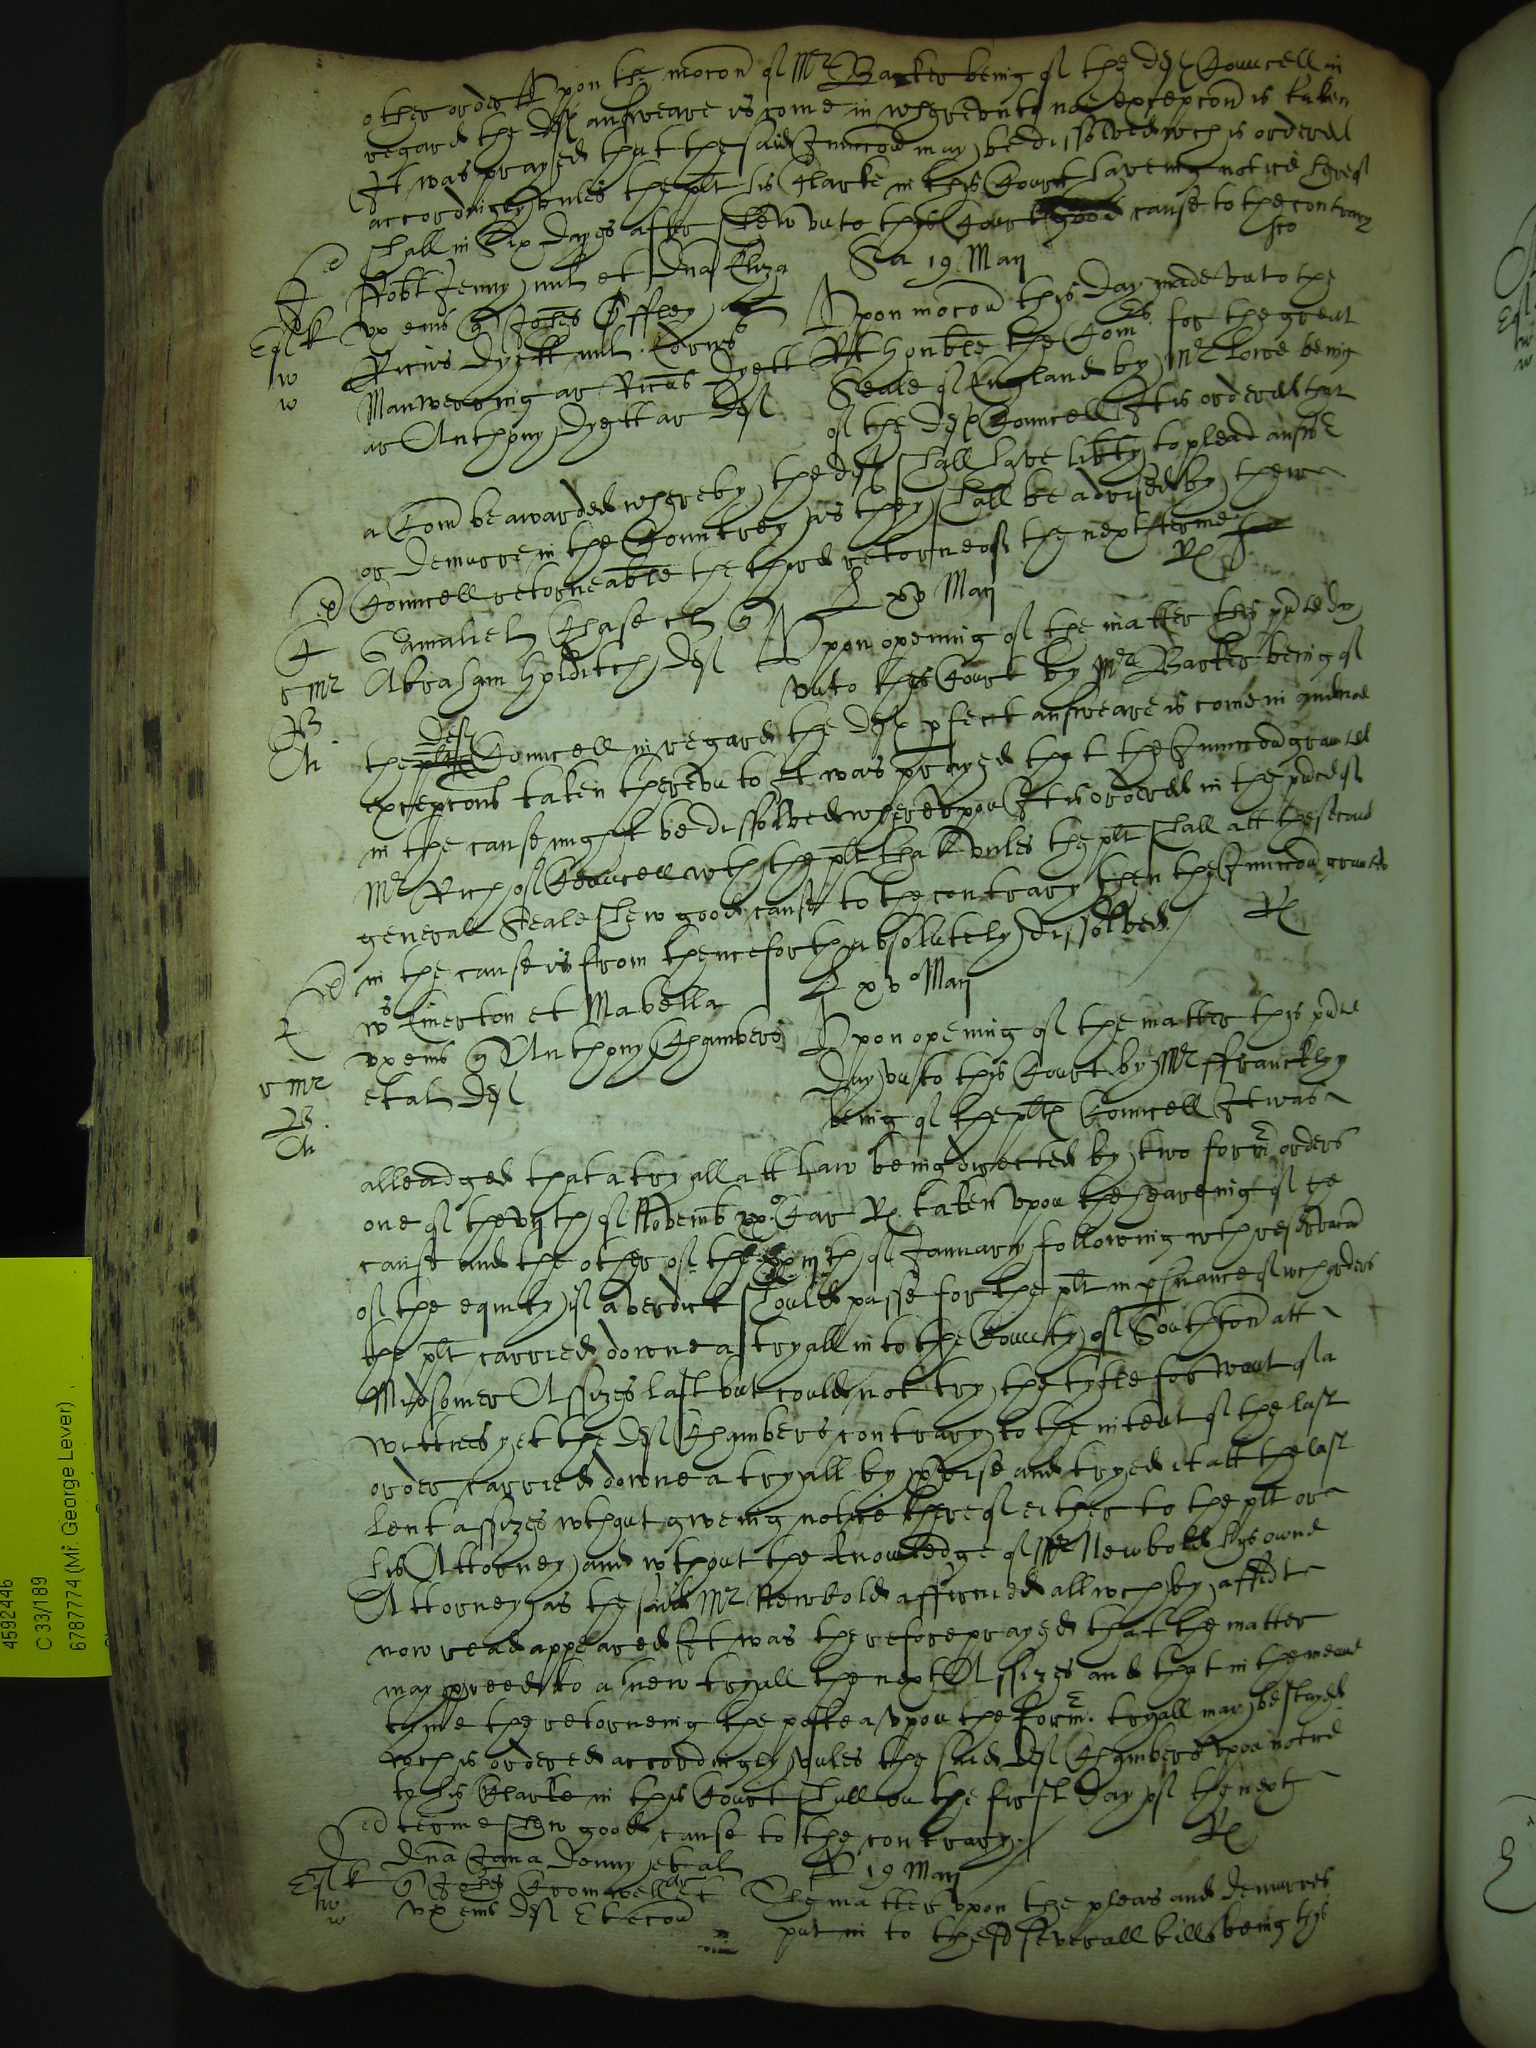 other order Upon the mocon of Mr Barker being of the Deft Councell in
regard the Deft answeare is come in whereunto noe excepcon is taken
It was prayed that the said Iniuncon may be dissolved wch is ordered
accordingly unles the plt his Clarke in this Court haveing notice thereof
shall in Six dayes after shew unto this Court good cause to the contrary
Sa 19 Maij
Robt Jenny mil et Dna Eliza
ux eius q Johes Offley ar
Ricus Dyett mil Edrus
Manwerring ar Ricus Dyett
ar Anthony Dyett ar Deft
Upon mocon this day made unto the
Rt honble the Comrs for the great
Seale of England by Mr Lowe being
of the Deft Councell It is ordered that
a Com be awarded whereby the deft shall have libty to plead answr
or demurre in the Countrey as they shall be advised by their
Councell retorneable the third retorne of the next terme
Rx
xv Maij
Gamaliel Chase cl q
Abraham Holditch Deft
Upon opening of the matter this pnte day
unto this Court by Mr Barker being of
the Deft Councell in regard the Deft pfect answeare is come in and noe
excepcons taken thereunto It was prayed that the Iniuncon graunted
in the cause might be dissolved whereupon It is ordered in the pnce of
Mr Rich of Councell wth the plt that unles the plt shall att the second
generall Seale shew good cause to the contrary then the Iniuncon graunted
in the cause is from thenceforth absolutely dissolved
Rx
xvo Maij
Ws Emerton et Mabella
ux eius q Anthony Chambers
et al Deft
Upon opening of the matter this pnte
Day unto this Court by Mr ffrancklyn
being of the plts Councell It was
alleadged that a tryall att Law being directed by two former orders
one of the vijth of Novemb xxo Car Rx taken upon the heareing of the
cause and the other of the of January following wth reservacon
of the equity if a verdict should passe for the plt in psuance of wch orders
the plt carried downe a tryall into the County of Southton att
Midsomer Assizes last but could not try the tytle for want of a
wittnes yet the Deft Chambers contrary to the intent of the last
order carried downe a tryall by pviso and tryed it att the last
Lent assizes wthout giveing notice thereof either to the plt or
his Attorney and wthout the knowledge of Mr Newbold his owne
Attorney as the said Mr Newbold affirmed all wch by affidt
now read appeared It was therefore prayed that the matter
may pceed to a new tryall the next Assizes and that in the meane
tyme the retorneing the postea upon the formr tryall may be stayed
wch is ordered accordingly unles the said Deft Chambers upon notice
to his Clarke in this Court shall on the first day of the next
terme shew good cause to the contrary
Rx
19 Maij
Dna Jana Denny et al
q Johes Cromwell ar et
ux eius Deft Et econ
The matter upon the pleas and demurres
put in to the sd severall bills being this
4592446
C 33/189
6787774 (Mr. George Lever)